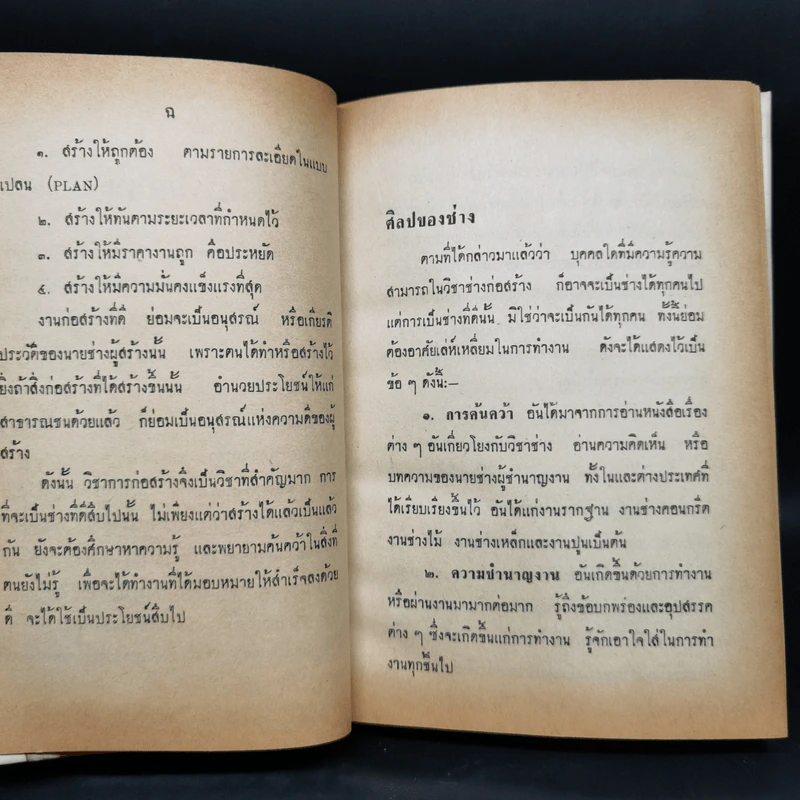 ฉ
๑. สร้างให้ถูกต้อง ตามรายการละเอียดในแบบ
แปลน (PLAN)
๒. สร้างให้ทันตามระยะเวลาที่กำหนดไว้
๓. สร้างให้มีราคางานถูก คือประหยัด
๔. สร้างให้มีความมั่นคงแข็งแรงที่สุด
งานก่อสร้างที่ดี ย่อมจะเป็นอนุสรณ์ หรือเกียรติ
ประวัติของนายช่างผู้สร้างนั้น เพราะตนได้ทำหรือสร้างไว้
ยิ่งถ้าสิ่งก่อสร้างที่ได้สร้างขึ้นนั้น อำนวยประโยชน์ให้แก่
สาธารณชนด้วยแล้ว ก็ย่อมเป็นอนุสรณ์แห่งความดีของผู้
สร้าง
ดังนั้น วิชาการก่อสร้างจึงเป็นวิชาที่สำคัญมาก การ
ที่จะเป็นช่างที่ดีสืบไปนั้น ไม่เพียงแต่ว่าสร้างได้แล้วเป็นแล้ว
กัน ยังจะต้องศึกษาหาความรู้ และพยายามค้นคว้าในสิ่งที่
ตนยังไม่รู้ เพื่อจะได้ทำงานที่ได้มอบหมายให้สำเร็จลงด้วย
ดี จะได้ใช้เป็นประโยชน์สืบไป
ศิลปของช่าง
ตามที่ได้กล่าวมาแล้วว่า บุคคลใดที่มีความรู้ความ
สามารถในวิชาช่างก่อสร้าง ก็อาจจะเป็นช่างได้ทุกคนไป
แต่การเป็นช่างที่ดีนั้น มิใช่ว่าจะเป็นกันได้ทุกคน ทั้งนี้ย่อม
ต้องอาศัยเล่ห์เหลี่ยมในการทำงาน ดังจะได้แสดงไว้เป็น
ข้อ ๆ ดังนี้:—
๑. การค้นคว้า อันได้มาจากการอ่านหนังสือเรื่อง
ต่าง ๆ อันเกี่ยวโยงกับวิชาช่าง อ่านความคิดเห็น หรือ
บทความของนายช่างผู้ชำนาญงาน ทั้งในและต่างประเทศที่
ได้เรียบเรียงขึ้นไว้ อันได้แก่งานรากฐาน งานช่างคอนกรีต
งานช่างไม้ งานช่างเหล็กและงานปูนเป็นต้น
๒. ความชำนาญงาน อันเกิดขึ้นด้วยการทำงาน
หรือผ่านงานมามากต่อมาก รู้ถึงข้อบกพร่องและอุปสรรค
ต่าง ๆ ซึ่งจะเกิดขึ้นแก่การทำงาน รู้จักเอาใจใส่ในการทำ
งานทุกชิ้นไป